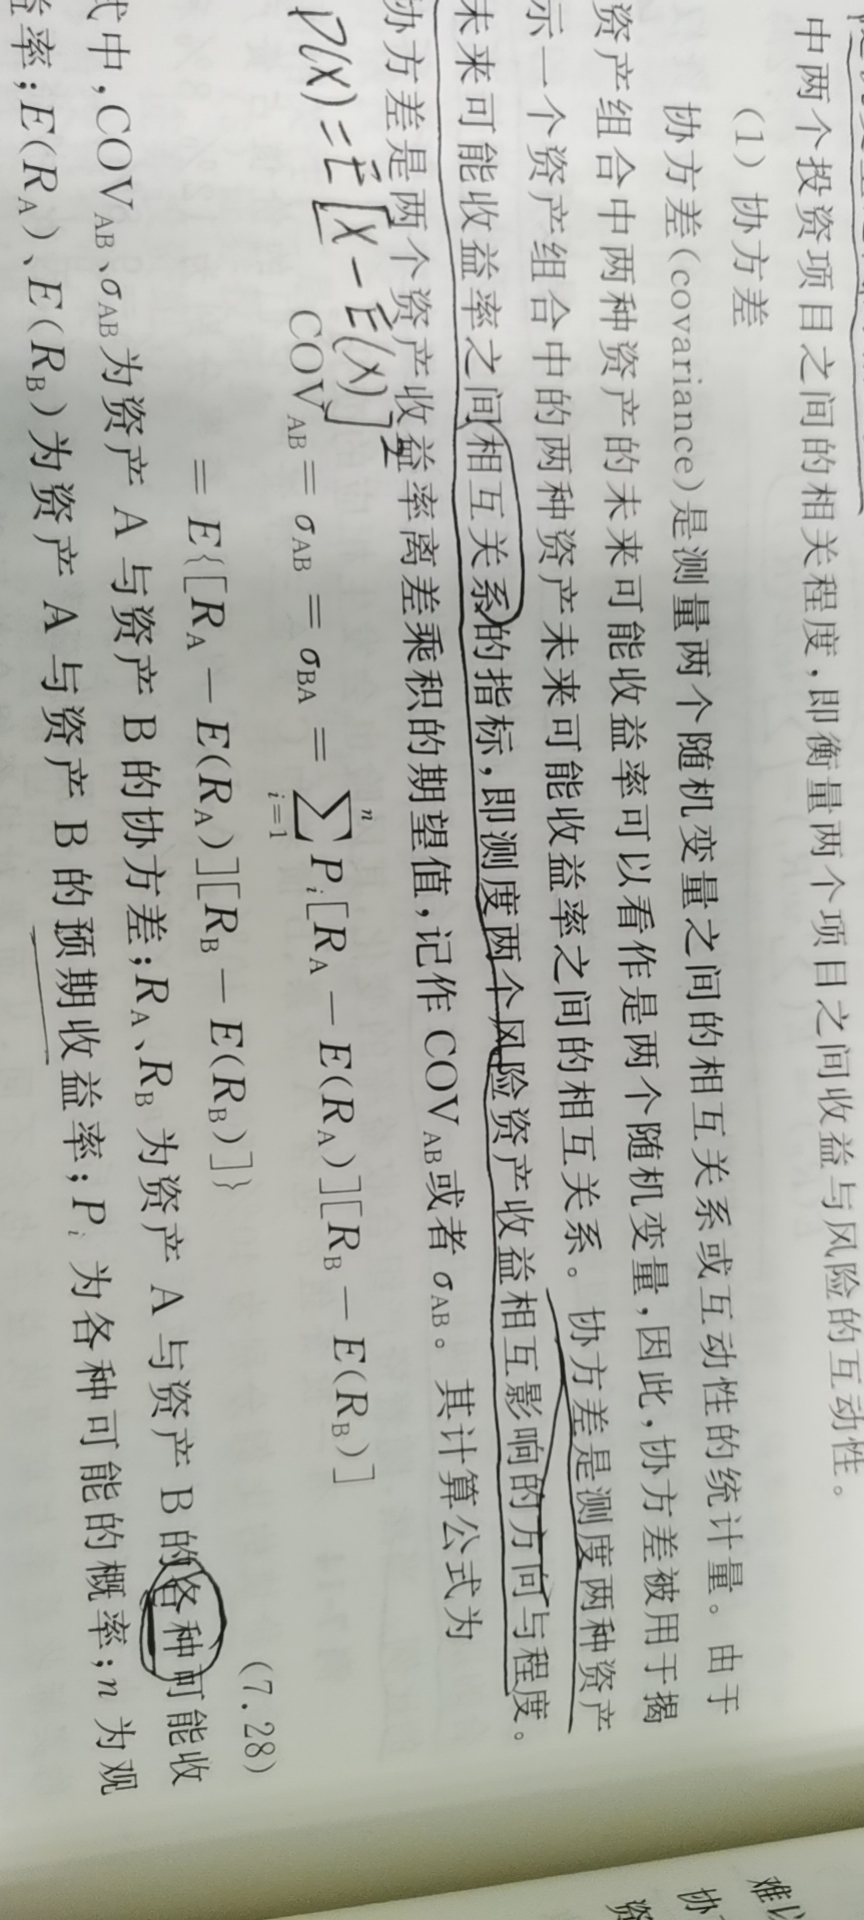 中两个投资项目之间的相关程度,即衡量两个项目之间收益与风险的互动性。
(1) 协方差
协方差(covariance)是测量两个随机变量之间的相互关系或互动性的统计量。由于
资产组合中两种资产的未来可能收益率可以看作是两个随机变量,因此,协方差被用于揭
示一个资产组合中的两种资产未来可能收益率之间的相互关系。协方差是测度两种资产
未来可能收益率之间相互关系的指标,即测度两个风险资产收益相互影响的方向与程度。
协方差是两个资产收益率离差乘积的期望值,记作 COV_AB 或者 σ_AB。其计算公式为
D(X) = E[X - E(X)]²
COV_AB = σ_AB = σ_BA = ∑_{i=1}^{n} P_i[R_A - E(R_A)][R_B - E(R_B)]
= E{[R_A - E(R_A)][R_B - E(R_B)]}
(7.28)
式中,COV_AB、σ_AB 为资产 A 与资产 B 的协方差;R_A、R_B 为资产 A 与资产 B 的各种可能收
益率;E(R_A)、E(R_B)为资产 A 与资产 B 的预期收益率;P_i 为各种可能的概率;n 为观
难以
协
资